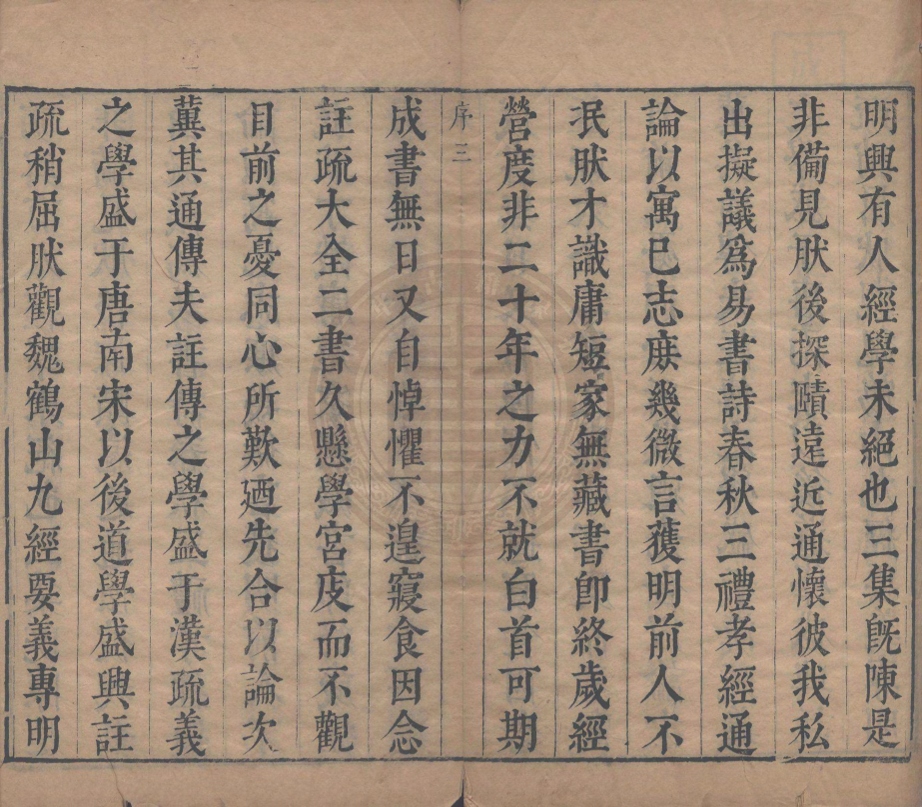 明興有人經學未絕也三集旣陳是
非備見肰後探賾遠近通懷彼我私
出擬議爲易書詩春秋三禮孝經通
論以寓巳志庶幾微言獲明前人不
泯肰才識庸短家無藏書卽終歲經
營度非二十年之力不就白首可期
序三
成書無日又自悼懼不遑寢食因念
註疏大全二書久懸學宮庋而不觀
目前之憂同心所歎廼先合以論次
兾其通傳夫註傳之學盛于漢疏義
之學盛于唐南宋以後道學盛興註
疏稍屈肰觀魏鶴山九經要義專明